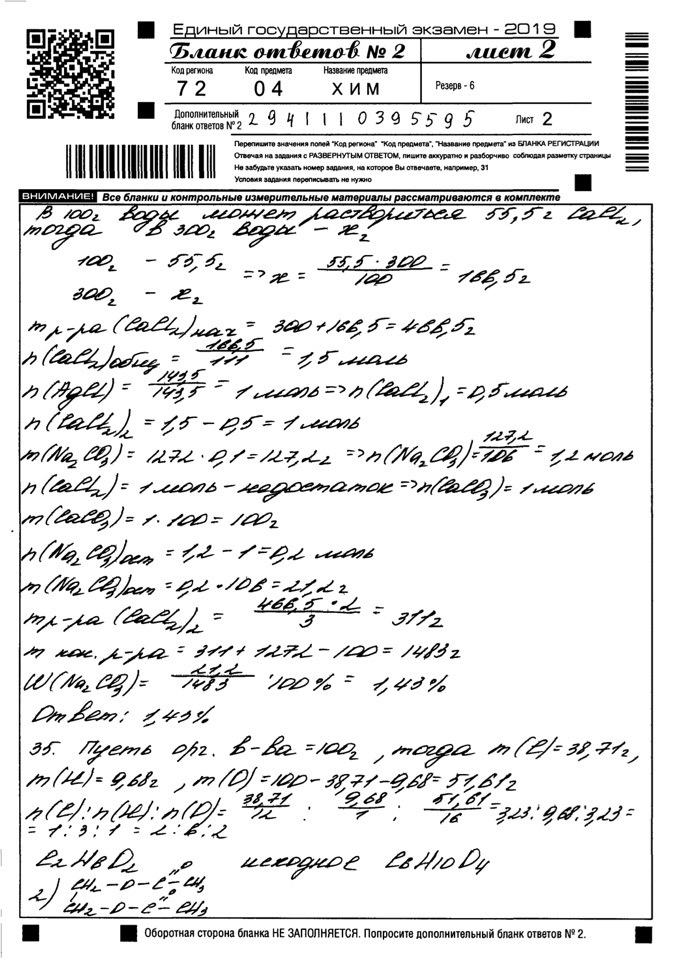 Единый государственный экзамен - 2019
Бланк ответов № 2 лист 2
Код региона Код предмета Название предмета
72 04 ХИМ Резерв - 6
Дополнительный бланк ответов № 2 2941110395595 Лист 2
Перепишите значения полей "Код региона" "Код предмета", "Название предмета" из БЛАНКА РЕГИСТРАЦИИ
Отвечая на задания с РАЗВЕРНУТЫМ ОТВЕТОМ, пишите аккуратно и разборчиво соблюдая разметку страницы
Не забудьте указать номер задания, на которое Вы отвечаете, например, 31
Условия задания переписывать не нужно
ВНИМАНИЕ! Все бланки и контрольные измерительные материалы рассматриваются в комплекте
В 100г воды может раствориться 55,5г CaCl2,
тогда в 300г воды – xг
100г – 55,5г => x = 55,5 · 300 / 100 = 166,5г
300г – xг
m р-ра (CaCl2)нач = 300 + 166,5 = 466,5г
n(CaCl2)общ = 166,5 / 111 = 1,5 моль
n(AgCl) = 143,5 / 143,5 = 1 моль => n(CaCl2)1 = 0,5 моль
n(CaCl2)2 = 1,5 – 0,5 = 1 моль
m(Na2CO3) = 1272 · 0,1 = 127,2г => n(Na2CO3) = 127,2 / 106 = 1,2 моль
n(CaCl2) = 1 моль – недостаток => n(CaCO3) = 1 моль
m(CaCO3) = 1 · 100 = 100г
n(Na2CO3)ост = 1,2 – 1 = 0,2 моль
m(Na2CO3)ост = 0,2 · 106 = 21,2г
m р-ра (CaCl2)2 = 466,5 · 2 / 3 = 311г
m кон. р-ра = 311 + 1272 – 100 = 1483г
W(Na2CO3) = 21,2 / 1483 · 100% = 1,43%
Ответ: 1,43%
35. Пусть орг. в-ва = 100г, тогда m(C) = 38,71г,
m(H) = 9,68г, m(O) = 100 – 38,71 – 9,68 = 51,61г
n(C) : n(H) : n(O) = 38,71 / 12 : 9,68 / 1 : 51,61 / 16 = 3,23 : 9,68 : 3,23 =
= 1 : 3 : 1 = 2 : 6 : 2
C2H6O2 исходное C6H10O4
O
2) CH2 – O – C – CH3
CH2 – O – C – CH3
Оборотная сторона бланка НЕ ЗАПОЛНЯЕТСЯ. Попросите дополнительный бланк ответов № 2.